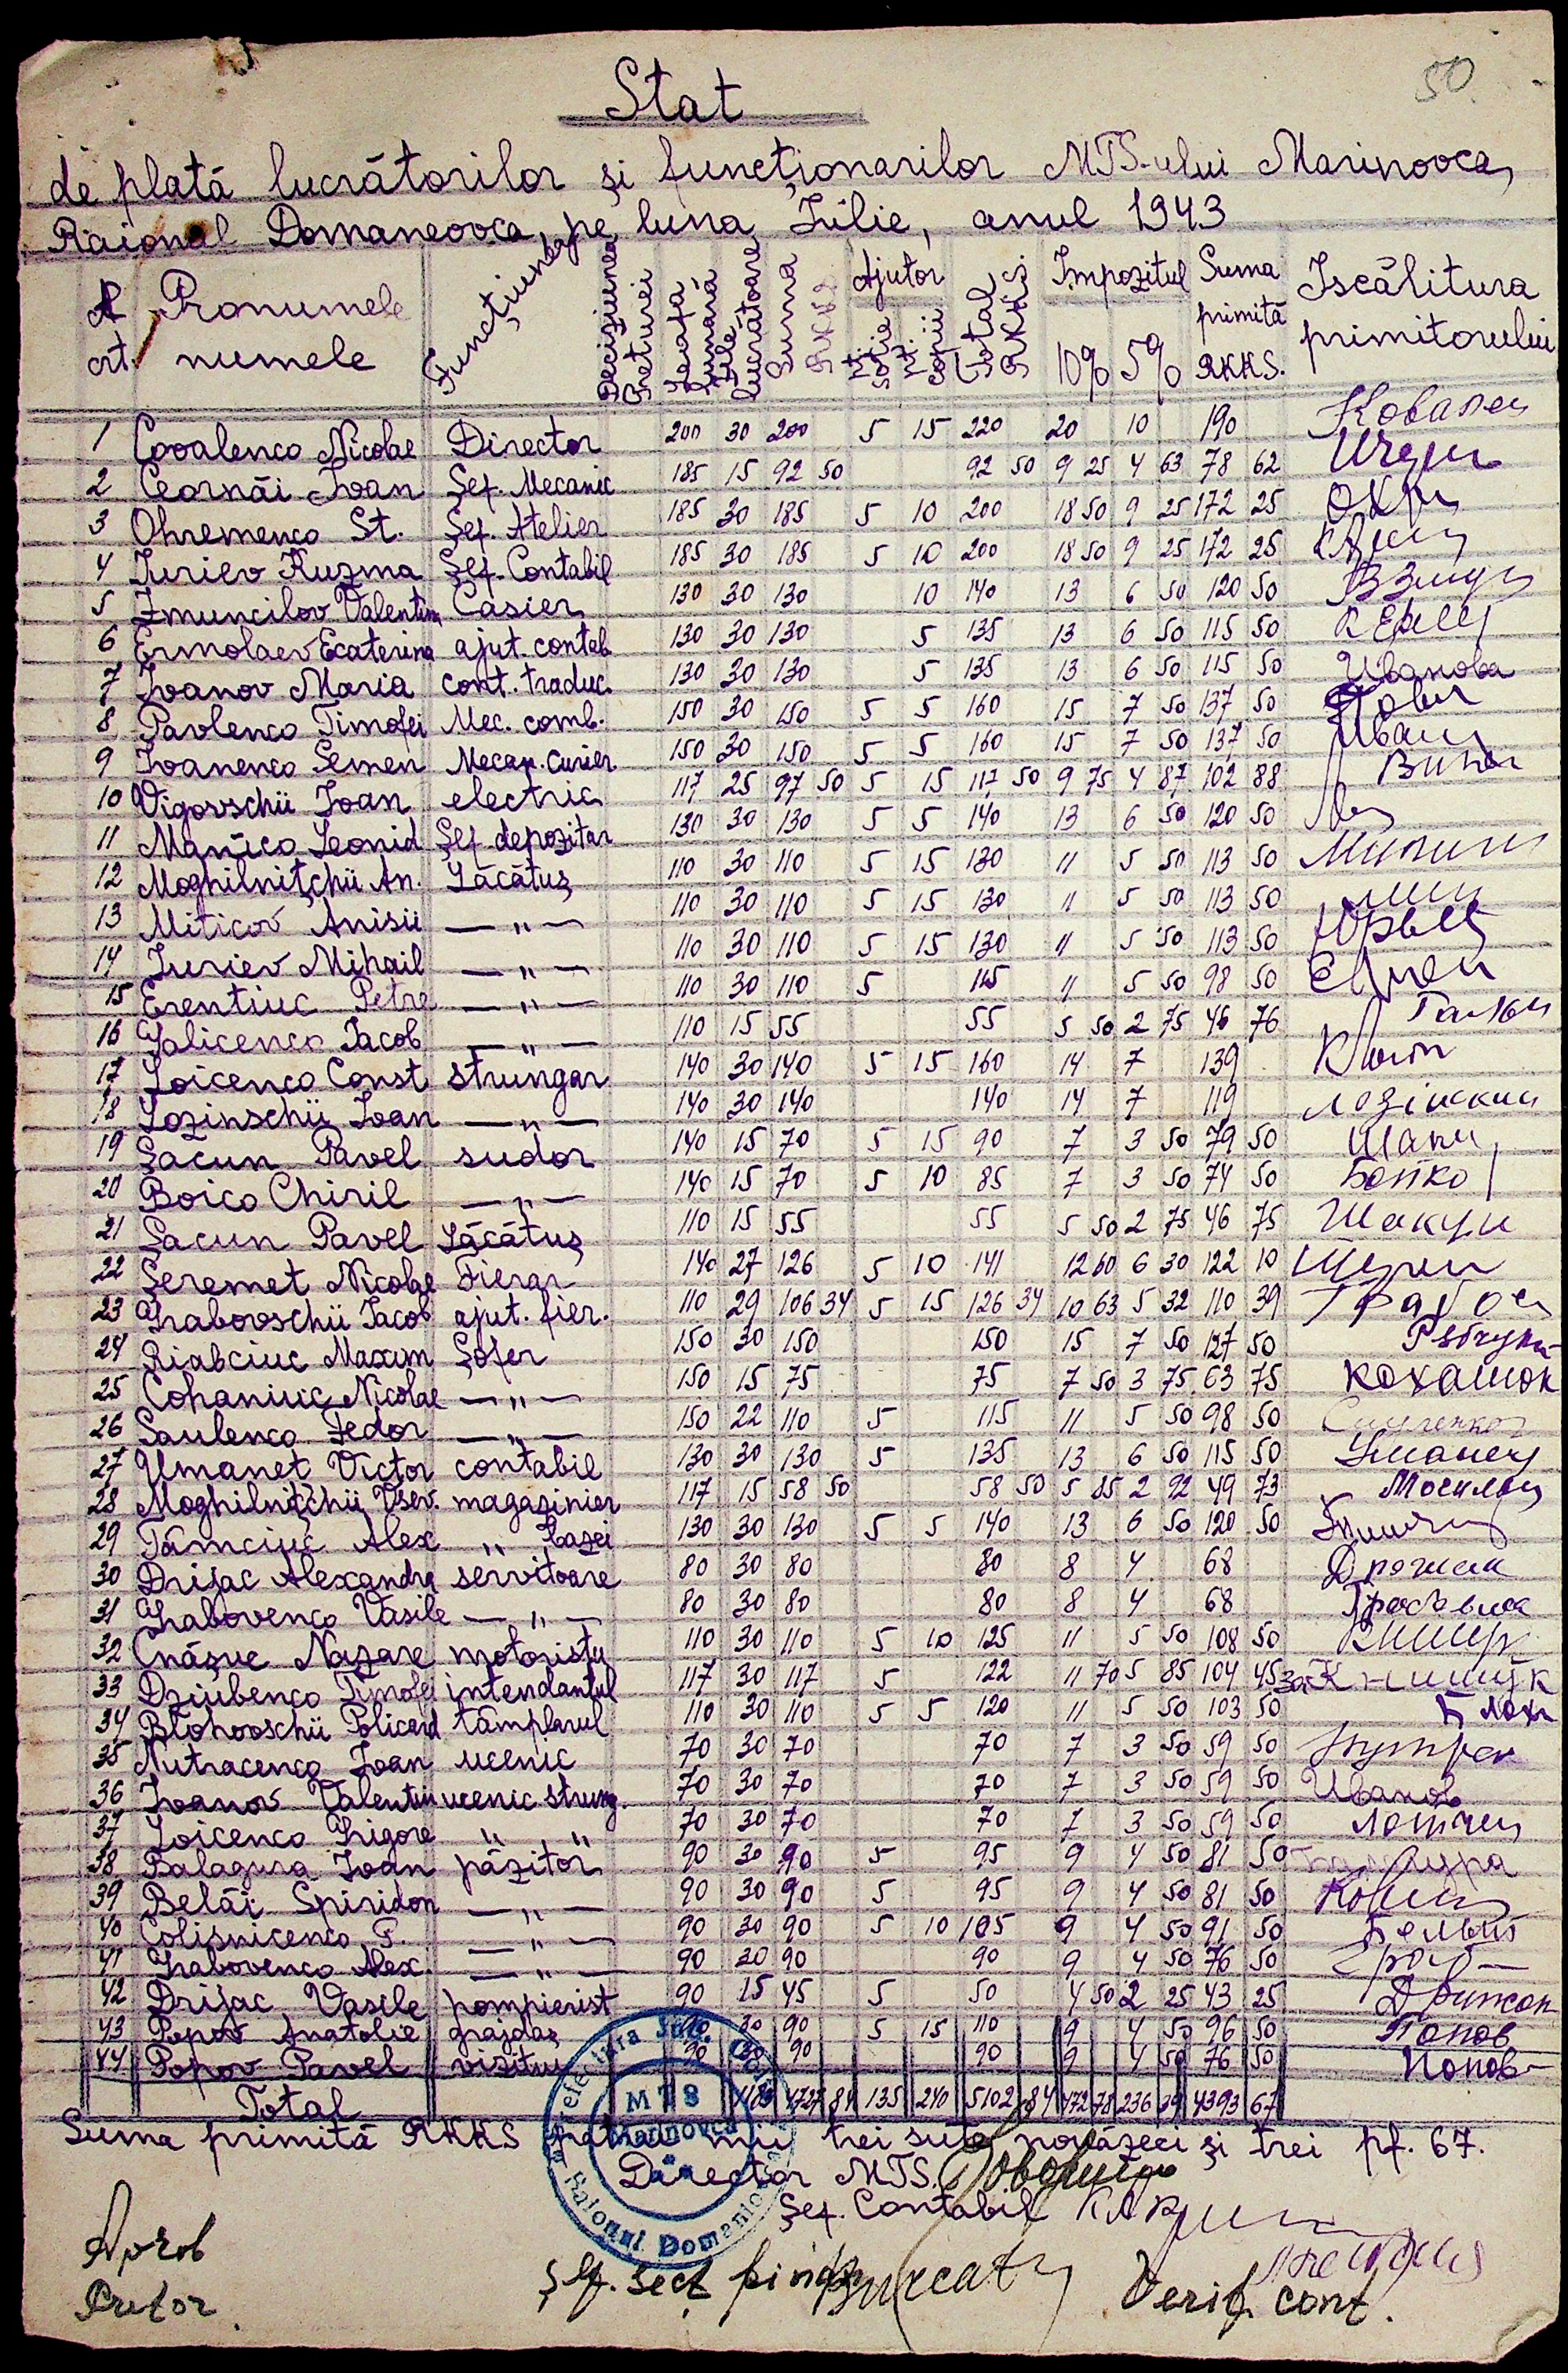 50
Stat
de plată lucrătorilor și funcționarilor MTS-ului Marinovca,
Raional Domaneovca, pe luna Iulie, anul 1943
N crt. Pronumele numele Funcțiunea Deciziunea Preturei Leafa lunară zile lucrătoare Suma RKKS Ajutor pt. soție pt. copii Total RKKS Impozitul 10% 5% Suma primită RKKS. Iscălitura primitorului
1 Covalenco Nicolae Director 200 30 200 5 15 220 20 10 190
2 Ceornăi Ivan Șef. Mecanic 185 15 92 50 92 50 9 25 4 63 78 62
3 Ohremenco St. Șef. Atelier 185 30 185 5 10 200 18 50 9 25 172 25
4 Iuriev Kuzma Șef. Contabil 185 30 185 5 10 200 18 50 9 25 172 25
5 Zmuncilov Valentin Casier 130 30 130 10 140 13 6 50 120 50
6 Ermolaev Ecaterina ajut. contab 130 30 130 5 135 13 6 50 115 50
7 Ivanov Maria cont. traduc. 130 30 130 5 135 13 6 50 115 50 Иванова
8 Pavlenco Timofei Mec. comb. 150 30 150 5 5 160 15 7 50 137 50
9 Ivanenco Semen Mecan. curier 150 30 150 5 5 160 15 7 50 137 50
10 Vigovschii Ioan electric 117 25 97 50 5 15 117 50 9 75 4 87 102 88
11 Manico Leonid Șef depozitar 130 30 130 5 5 140 13 6 50 120 50
12 Moghilnițchii An. Lăcătuș 110 30 110 5 15 130 11 5 50 113 50
13 Miticov Anisii — „ — 110 30 110 5 15 130 11 5 50 113 50
14 Iuriev Mihail — „ — 110 30 110 5 15 130 11 5 50 113 50
15 Erentiuc Petre — „ — 110 30 110 5 115 11 5 50 98 50
16 Galicenco Iacob — „ — 110 15 55 55 5 50 2 75 46 76
17 Loicenco Const. strungar 140 30 140 5 15 160 14 7 139
18 Lozinschii Ivan — „ — 140 30 140 140 14 7 119
19 Șacun Pavel sudor 140 15 70 5 15 90 7 3 50 79 50
20 Boico Chiril — „ — 140 15 70 5 10 85 7 3 50 74 50 Бойко
21 Șacun Pavel Lăcătuș 110 15 55 55 5 50 2 75 46 75 Шакун
22 Șeremet Nicolae Fierar 140 27 126 5 10 141 12 60 6 30 122 10
23 Grabovschii Iacob ajut. fier. 110 29 106 34 5 15 126 34 10 63 5 32 110 39
24 Riabciuc Maxim Șofer 150 30 150 150 15 7 50 127 50
25 Cohaniuc Nicolae — „ — 150 15 75 75 7 50 3 75 63 75
26 Saulenco Fedor — „ — 150 22 110 5 115 11 5 50 98 50
27 Umaneț Victor contabil 130 30 130 5 135 13 6 50 115 50
28 Moghilnițchii Vsev. magazinier 117 15 58 50 58 50 5 85 2 92 49 73
29 Tâmciuc Alex „ bazei 130 30 130 5 5 140 13 6 50 120 50
30 Drijac Alexandra servitoare 80 30 80 80 8 4 68
31 Grabovenco Vasile — „ — 80 30 80 80 8 4 68
32 Cnășue Nazare motoristu 110 30 110 5 10 125 11 5 50 108 50
33 Dziubenco Timofei intendantul 117 30 117 5 122 11 70 5 85 104 45
34 Blohovschii Policard tâmplarul 110 30 110 5 5 120 11 5 50 103 50
35 Nutracenco Ioan ucenic 70 30 70 70 7 3 50 59 50
36 Ivanov Valentin ucenic strung. 70 30 70 70 7 3 50 59 50 Иванов
37 Loicenco Grigore „ „ 70 30 70 70 7 3 50 59 50
38 Balagura Ivan păzitor 90 30 90 5 95 9 4 50 81 50
39 Belăi Spiridon — „ — 90 30 90 5 95 9 4 50 81 50
40 Colisnicenco P. — „ — 90 30 90 5 10 105 9 4 50 91 50 Белый
41 Grabovenco Alex. — „ — 90 30 90 90 9 4 50 76 50
42 Drijac Vasile pompierist 90 15 45 5 50 4 50 2 25 43 25
43 Popov Anatolie grajdar 90 30 90 5 15 110 9 4 50 96 50 Попов
44 Popov Pavel vizitiu 90 30 90 90 9 4 50 76 50 Попов
Total 4727 84 135 240 5102 84 472 78 236 39 4393 67
Suma primită RKKS patru mii trei sute novăzeci și trei pf. 67.
Director MTS.
Șef. Contabil
MTS Marinovca
Raionul Domanic
Aprob
Pretor
Șef. Sect
Verif. cont.